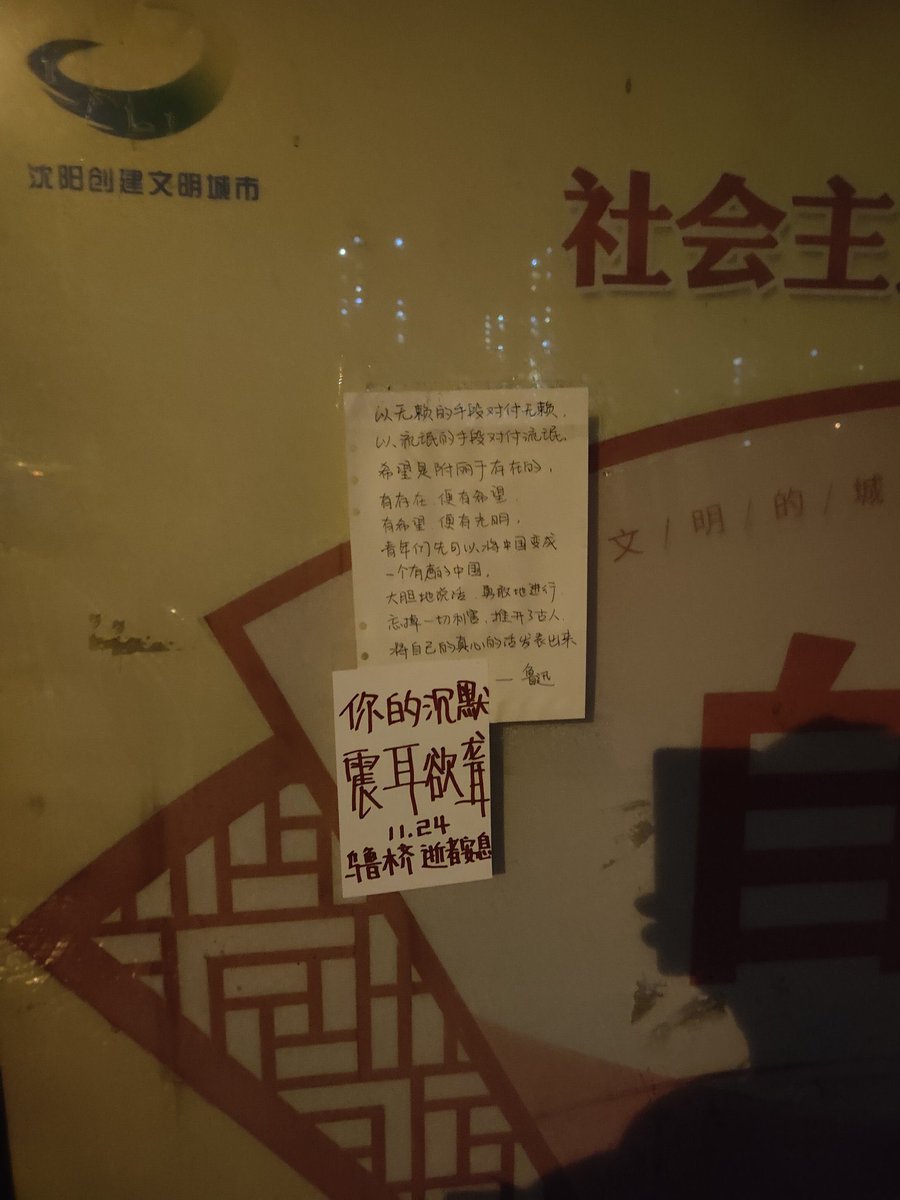 沈阳创建文明城市
社会主
文/明/的/城
自
以无赖的手段对付无赖,
以流氓的手段对付流氓。
希望是附丽于存在的,
有存在,便有希望,
有希望,便有光明,
青年们先可以将中国变成
一个有声的中国。
大胆地说话,勇敢地进行,
忘掉一切利害,推开了古人,
将自己的真心的话发表出来
—鲁迅
你的沉默
震耳欲聋
11.24
乌鲁木齐 逝者安息